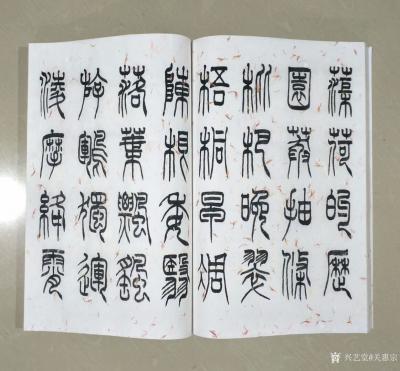 蕖荷的歷
園莽抽條
枇杷晚翠
梧桐早凋
陳根委翳
落葉飄颻
游鵾獨運
淩摩絳霄
兴艺堂@关惠宗